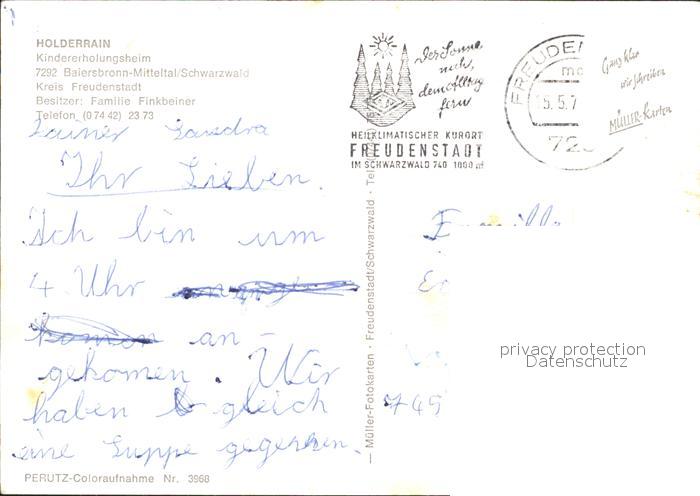 HOLDERRAIN
Kindererholungsheim
7292 Baiersbronn-Mitteltal/Schwarzwald
Kreis Freudenstadt
Besitzer: Familie Finkbeiner
Telefon (0 74 42) 23 73
Sandra
Ihr Lieben.
Ich bin um
4 Uhr
an-
gekomen. Wir
haben gleich
eine Suppe gegessen.
PERUTZ-Coloraufnahme Nr. 3968
Der Sonne
nah,
dem Alltag
fern
HEILKLIMATISCHER KURORT
FREUDENSTADT
IM SCHWARZWALD 740 1000 m
FREUDEN
15.5.7
72
Ganz klar
wir schreiben
MÜLLER-Karten
— Müller-Fotokarten · Freudenstadt/Schwarzwald · Tel
745
privacy protection
Datenschutz